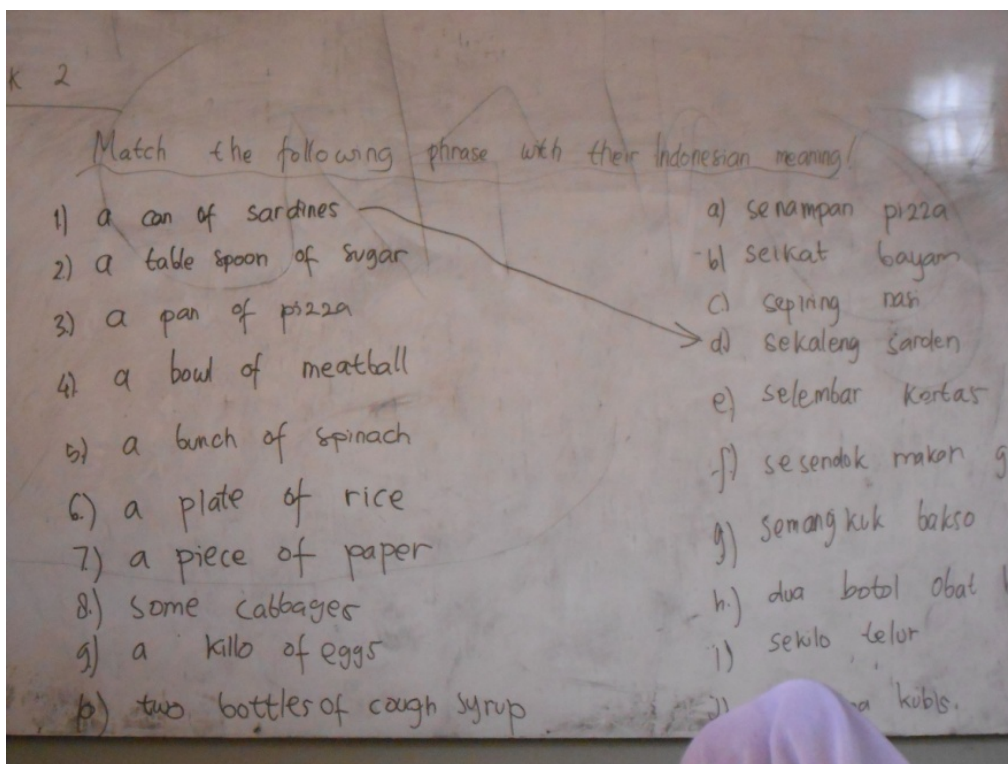 K 2
Match the following phrase with their Indonesian meaning!
1) a can of sardines
2) a table spoon of sugar
3) a pan of pizza
4) a bowl of meatball
5) a bunch of spinach
6.) a plate of rice
7) a piece of paper
8.) some cabbages
9) a killo of eggs
two bottles of cough syrup
a) senampan pizza
b) seikat bayam
c) sepiring nasi
d) sekaleng sarden
e) selembar kertas
f) sesendok makan g
g) semangkuk bakso
h.) dua botol obat
i) sekilo telur
kubis.